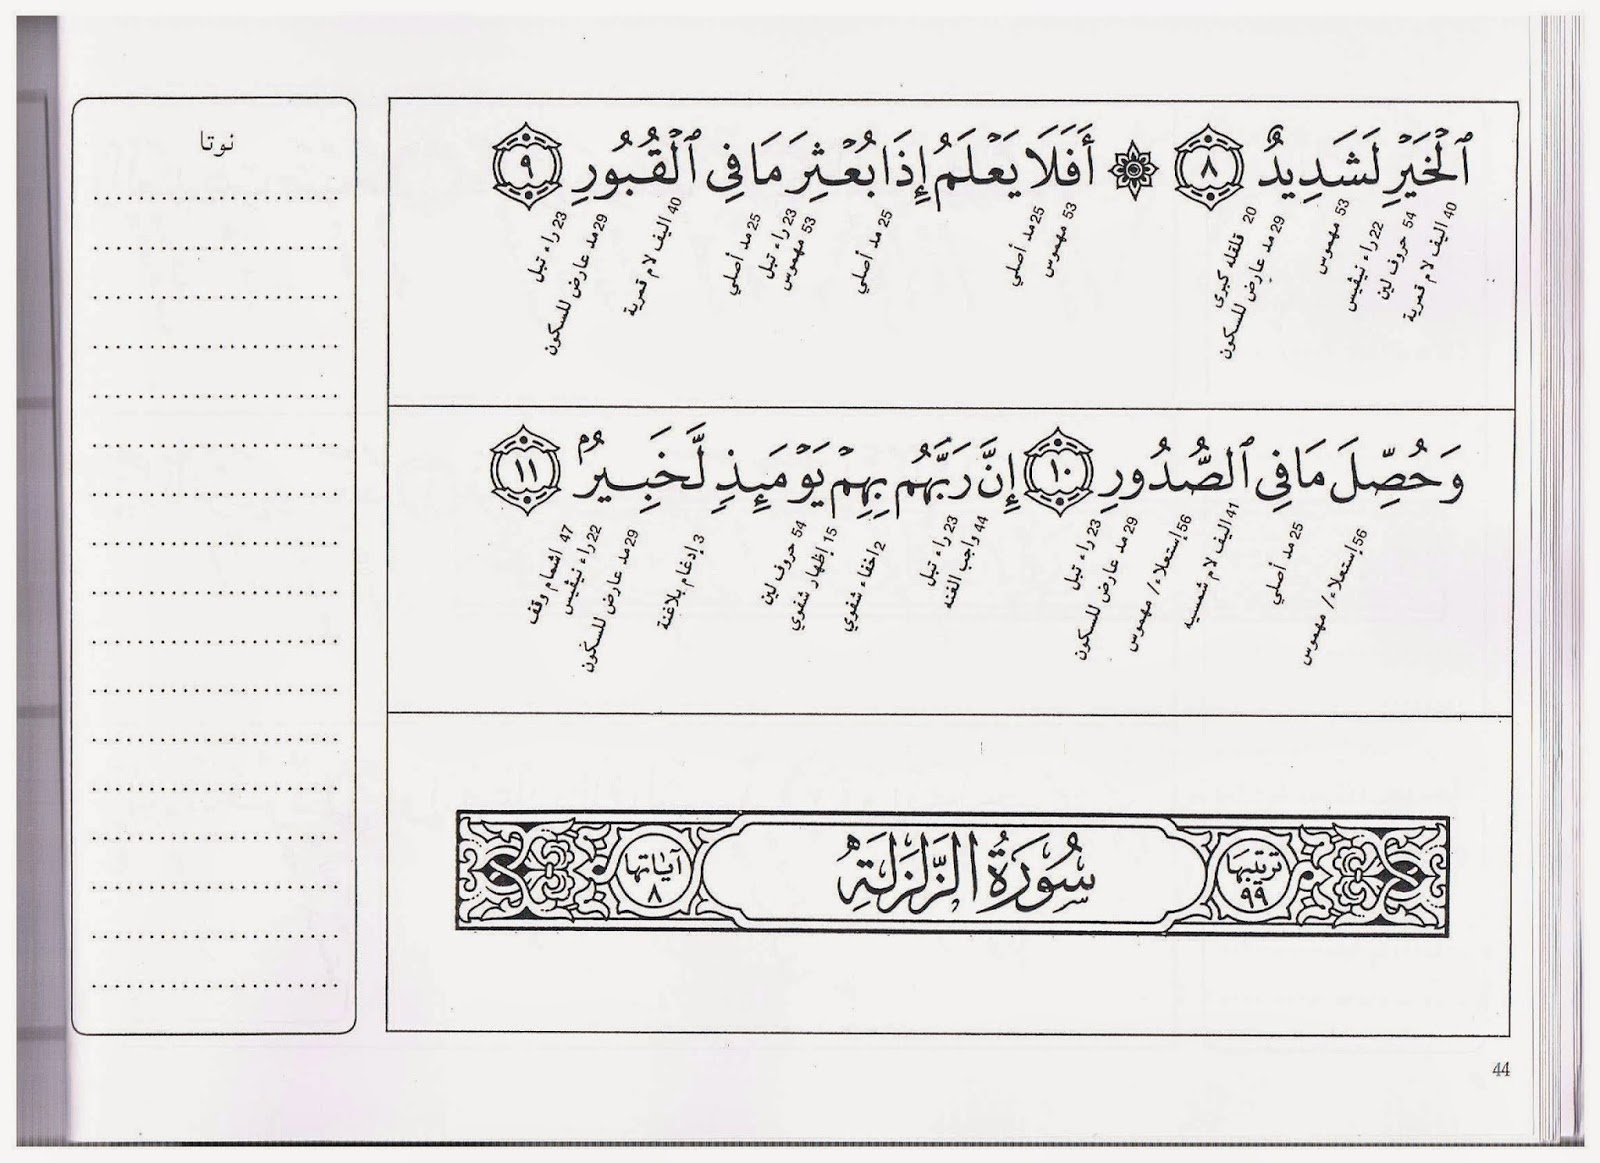 ٱلْخَيْرِ لَشَدِيدٌ ٨ أَفَلَا يَعْلَمُ إِذَا بُعْثِرَ مَا فِى ٱلْقُبُورِ ٩
40 اليف لام قمرية
54 حروف لين
22 راء نيڤيس
53 مهموس
20 قلقله كبرى
29 مد عارض للسكون
53 مهموس
25 مد أصلي
25 مد أصلي
23 راء تبل
53 مهموس
25 مد أصلي
40 اليف لام قمرية
29 مد عارض للسكون
23 راء تبل
وَحُصِّلَ مَا فِى ٱلصُّدُورِ ١٠ إِنَّ رَبَّهُم بِهِمْ يَوْمَئِذٍ لَّخَبِيرٌۢ ١١
56 إستعلاء/ مهموس
25 مد أصلي
41 اليف لام شمسيه
56 إستعلاء/ مهموس
29 مد عارض للسكون
23 راء تبل
44 واجب الغنه
23 راء تبل
2 اخفاء شفوي
15 إظهار شفوي
54 حروف لين
3 إدغام بلاغنة
29 مد عارض للسكون
22 راء نيڤيس
47 اشمام وقف
ترتيبها ٩٩
سُورَةُ الزَّلْزَلَةِ
آياتها ٨
نوتا
44